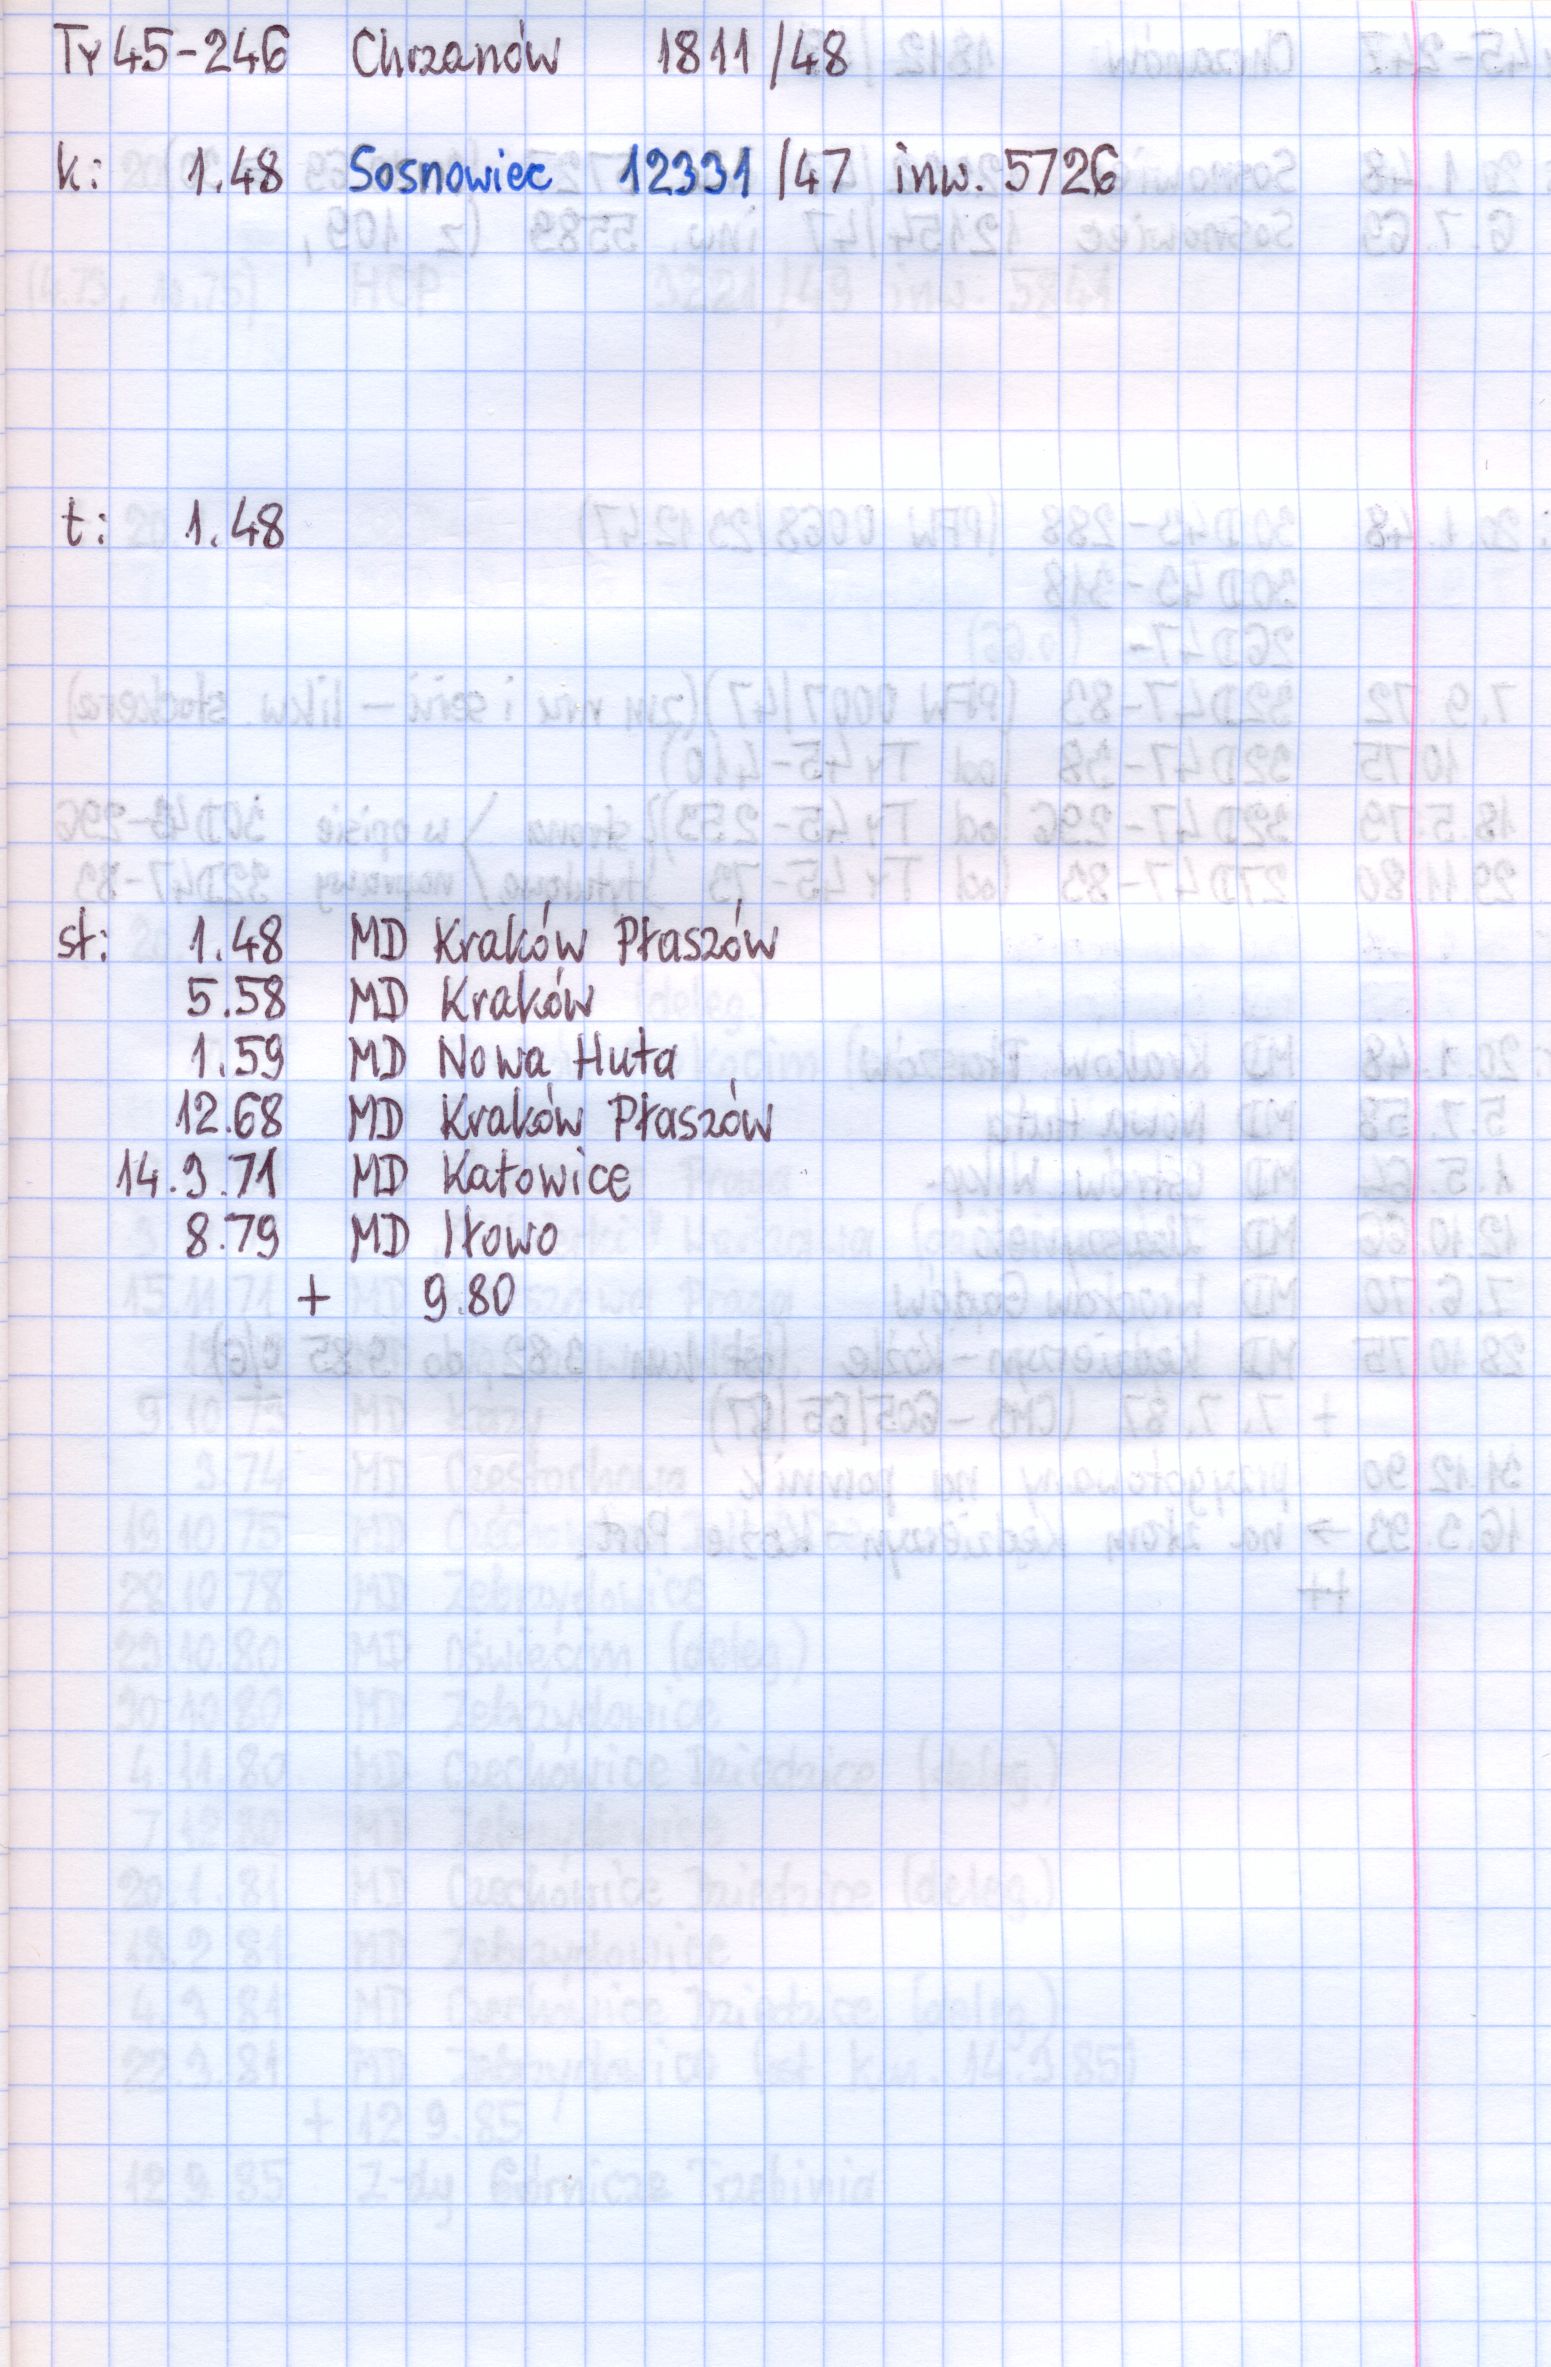 Ty45-246 Chrzanów 1811/48
k: 1.48 Sosnowiec 12331/47 inw. 5726
t: 1.48
st: 1.48 MD Kraków Płaszów
5.58 MD Kraków
1.59 MD Nowa Huta
12.68 MD Kraków Płaszów
14.3.71 MD Katowice
8.79 MD Iłowo
+ 9.80